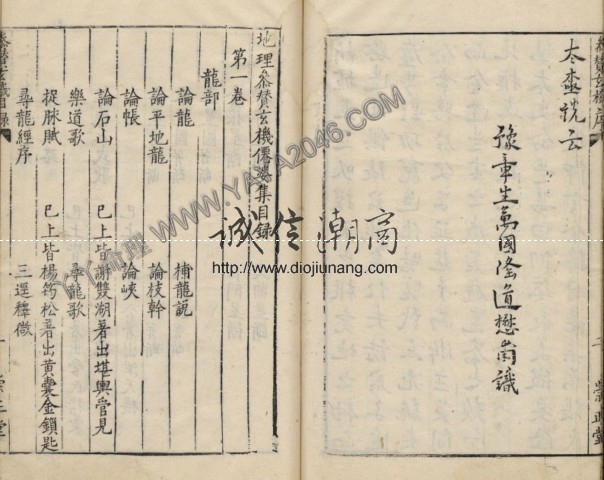 太𡊮說云
豫章生萬國隆道懋茵識
地理參贊玄機僊婆集目録
第一卷
龍部
論龍
補龍說
論平地龍
論枝幹
論帳
論峽
論石山
已上皆謝雙湖著出堪輿管見
樂道歌
尋龍歌
捉脉賦
已上皆楊筠松著出黄囊金鎖匙
尋龍經序
三選釋微
YY地理 WWW.YAYA2046.COM
誠信潮商
http://www.diojiunang.com